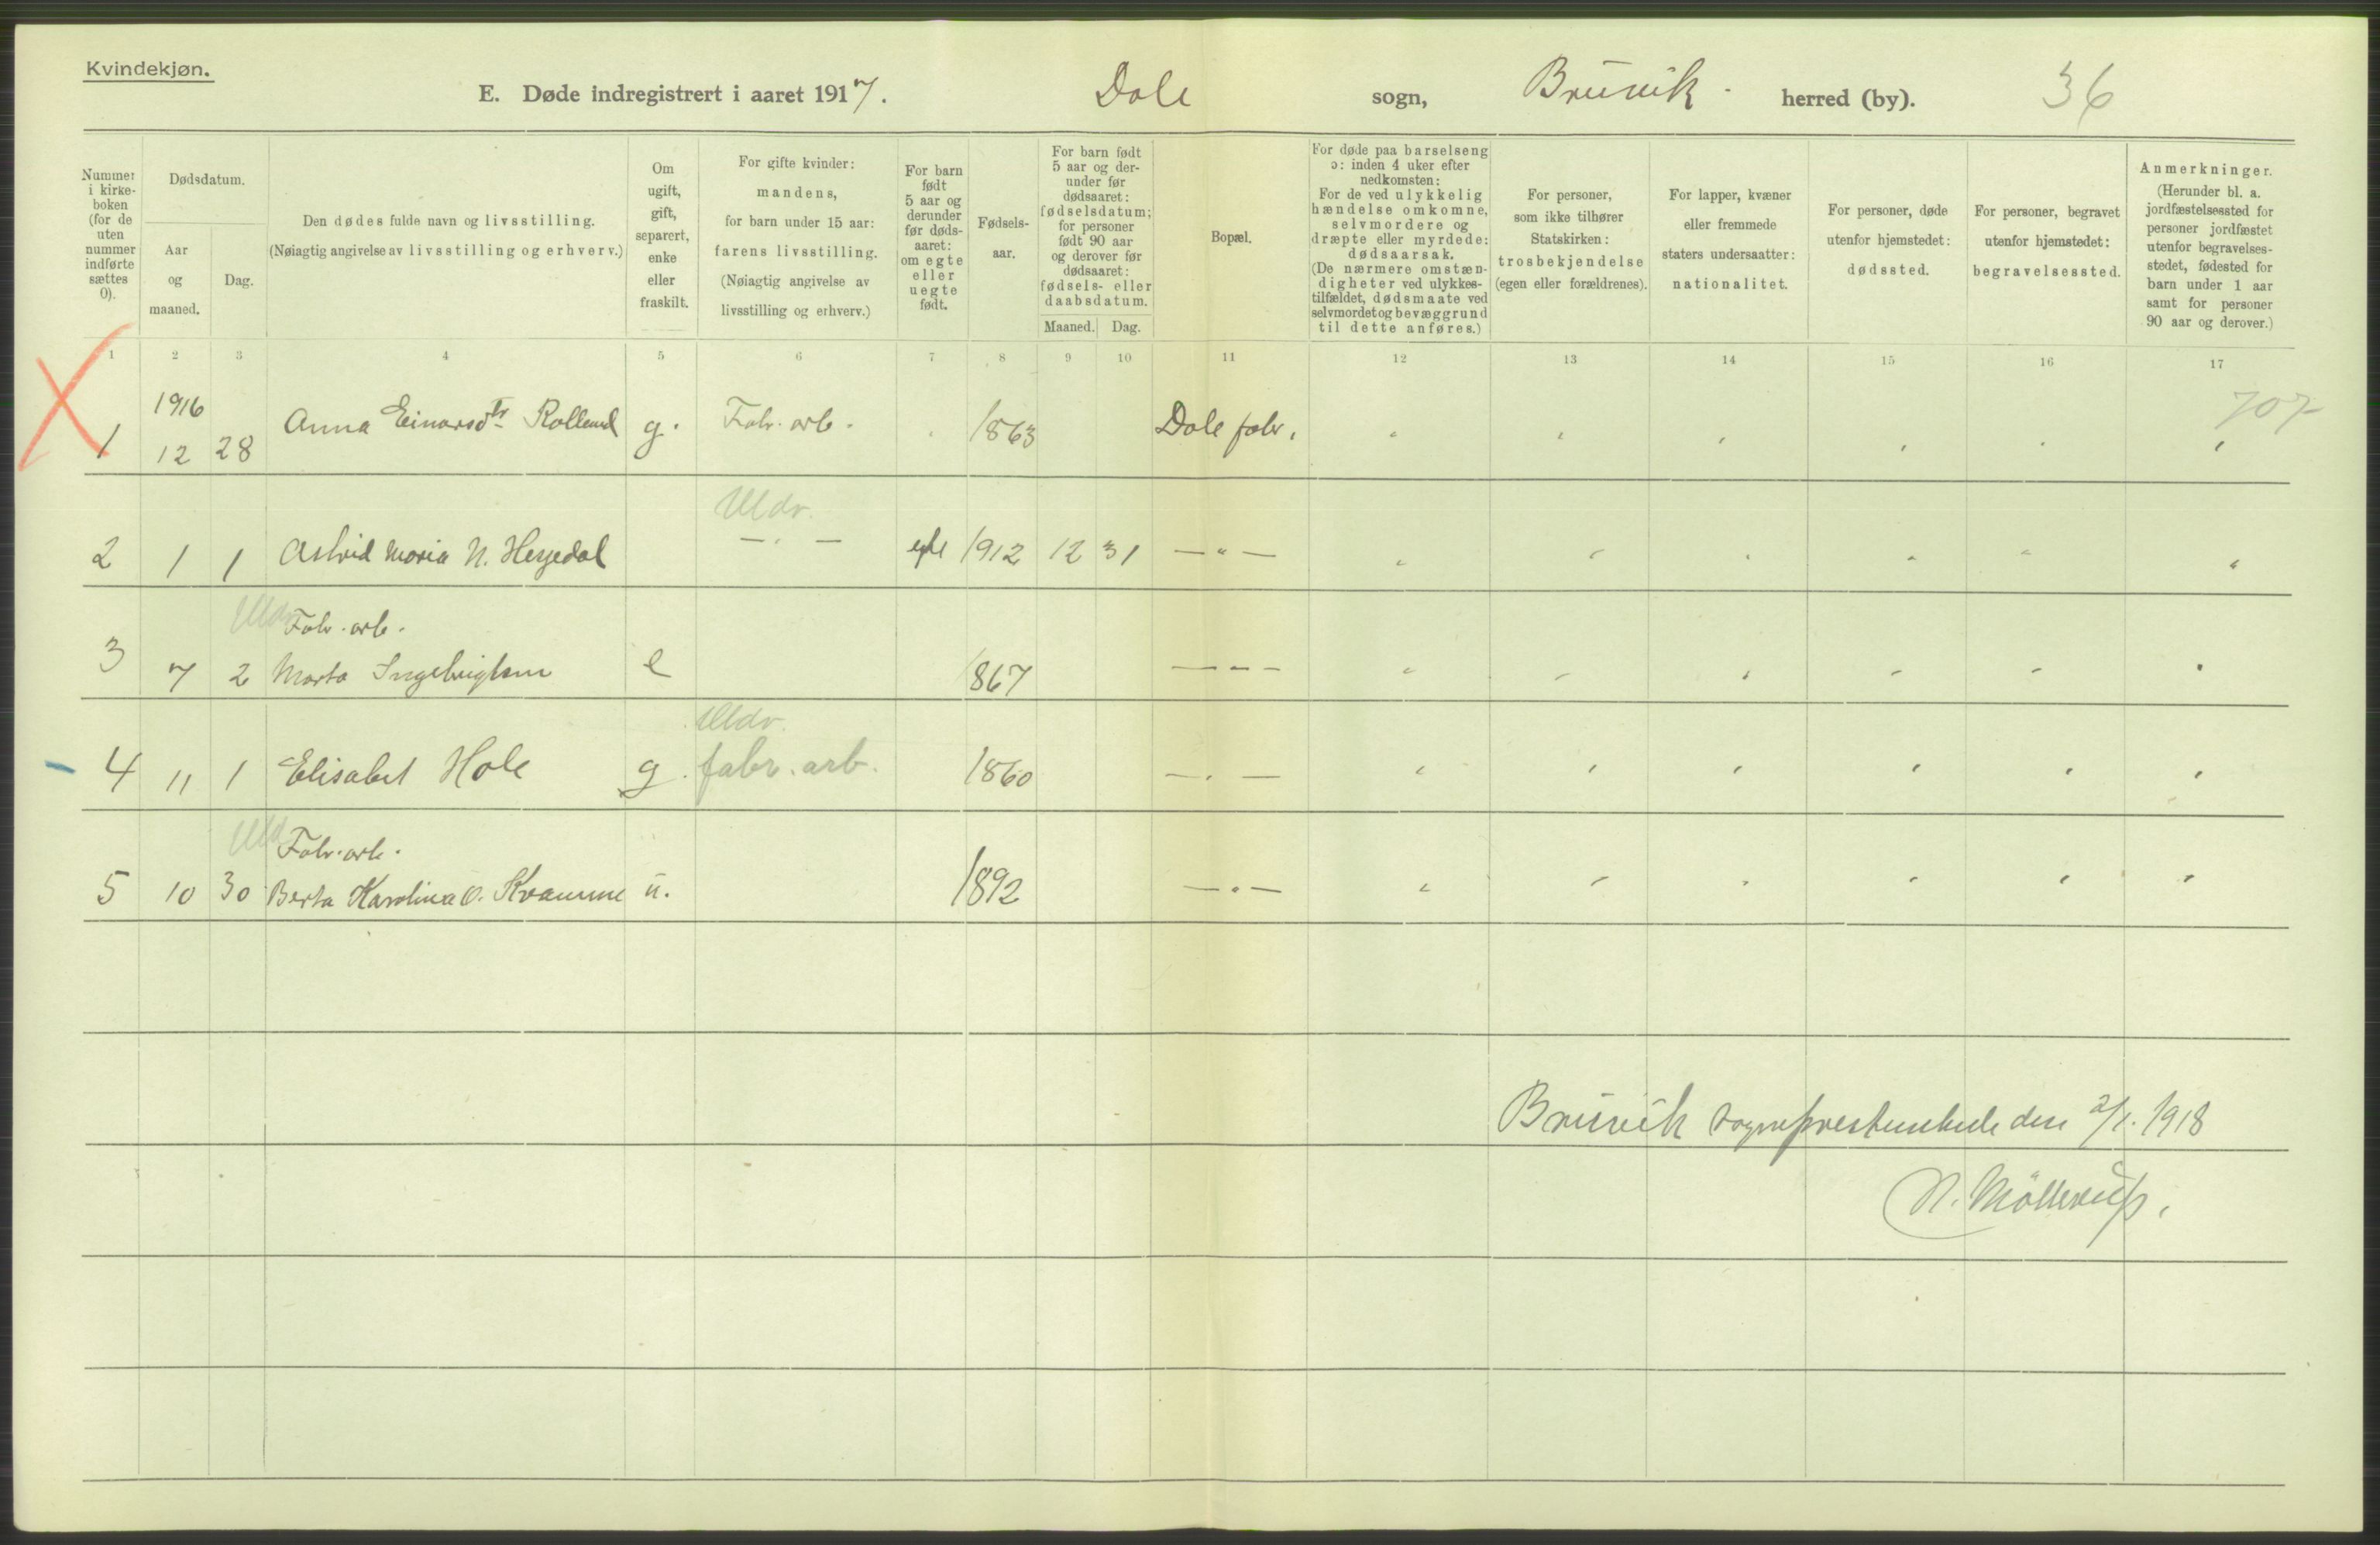 Kvindekjøn.
E. Døde indregistrert i aaret 1917. Dale sogn, Bruvik herred (by). 36
Nummer i kirkeboken (for de uten nummer indførte sættes 0).
Dødsdatum.
Aar og maaned.
Dag.
Den dødes fulde navn og livsstilling.
(Nøiagtig angivelse av livsstilling og erhverv.)
Om ugift, gift, separert, enke eller fraskilt.
For gifte kvinder:
mandens,
for barn under 15 aar:
farens livsstilling.
(Nøiagtig angivelse av
livsstilling og erhverv.)
For barn født 5 aar og derunder før dødsaaret: om egte eller uegte født.
Fødselsaar.
For barn født 5 aar og derunder før dødsaaret: fødselsdatum; for personer født 90 aar og derover før dødsaaret: fødsels- eller daabsdatum.
Maaned. Dag.
Bopæl.
For døde paa barselseng ɔ: inden 4 uker efter nedkomsten:
For de ved ulykkelig hændelse omkomne, selvmordere og dræpte eller myrdede: dødsaarsak.
(De nærmere omstændigheter ved ulykkestilfældet, dødsmaate ved selvmordet og bevæggrund til dette anføres.)
For personer, som ikke tilhører Statskirken: trosbekjendelse (egen eller forældrenes).
For lapper, kvæner eller fremmede staters undersaatter: nationalitet.
For personer, døde utenfor hjemstedet: dødssted.
For personer, begravet utenfor hjemstedet: begravelsessted.
Anmerkninger.
(Herunder bl. a. jordfæstelsessted for personer jordfæstet utenfor begravelsesstedet, fødested for barn under 1 aar samt for personer 90 aar og derover.)
1 2 3 4 5 6 7 8 9 10 11 12 13 14 15 16 17
1916 707
1 12 28 Anna Einarsdtr Rolland g. Fabr. arb. 1863 Dale fabr.
Uldv.
2 1 1 Astrid Maria N. Hesjedal — " — egte 1912 12 31 — " —
Uldv Fabr. arb.
3 7 2 Marta Ingebrigtsen e 1867 — " —
Uldv.
4 11 1 Elisabet Hole g. fabr. arb. 1860 — " —
Uld Fabr. arb.
5 10 30 Berta Karolina O. Kvamme u. 1892 — " —
Bruvik sogneprestembede den 2/1. 1918
N. Möllerup.